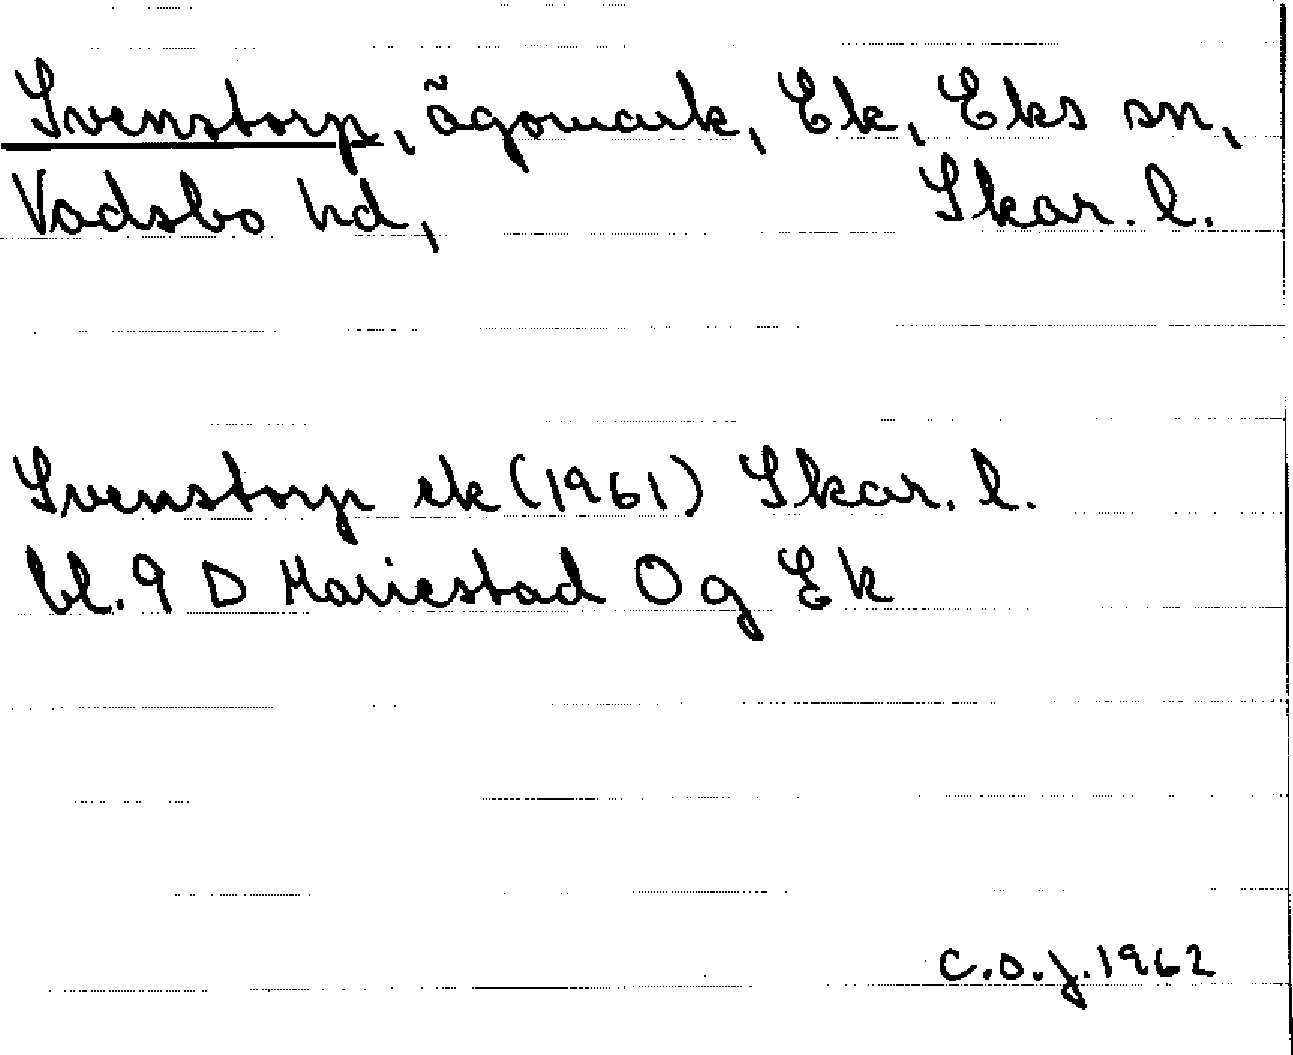 Svenstorp, ägomark, Ek, Eks sn,
Vadsbo hd, Skar. l.
Svenstorp ek (1961) Skar. l.
bl. 9 D Mariestad 0 g Ek
C.O.J. 1962